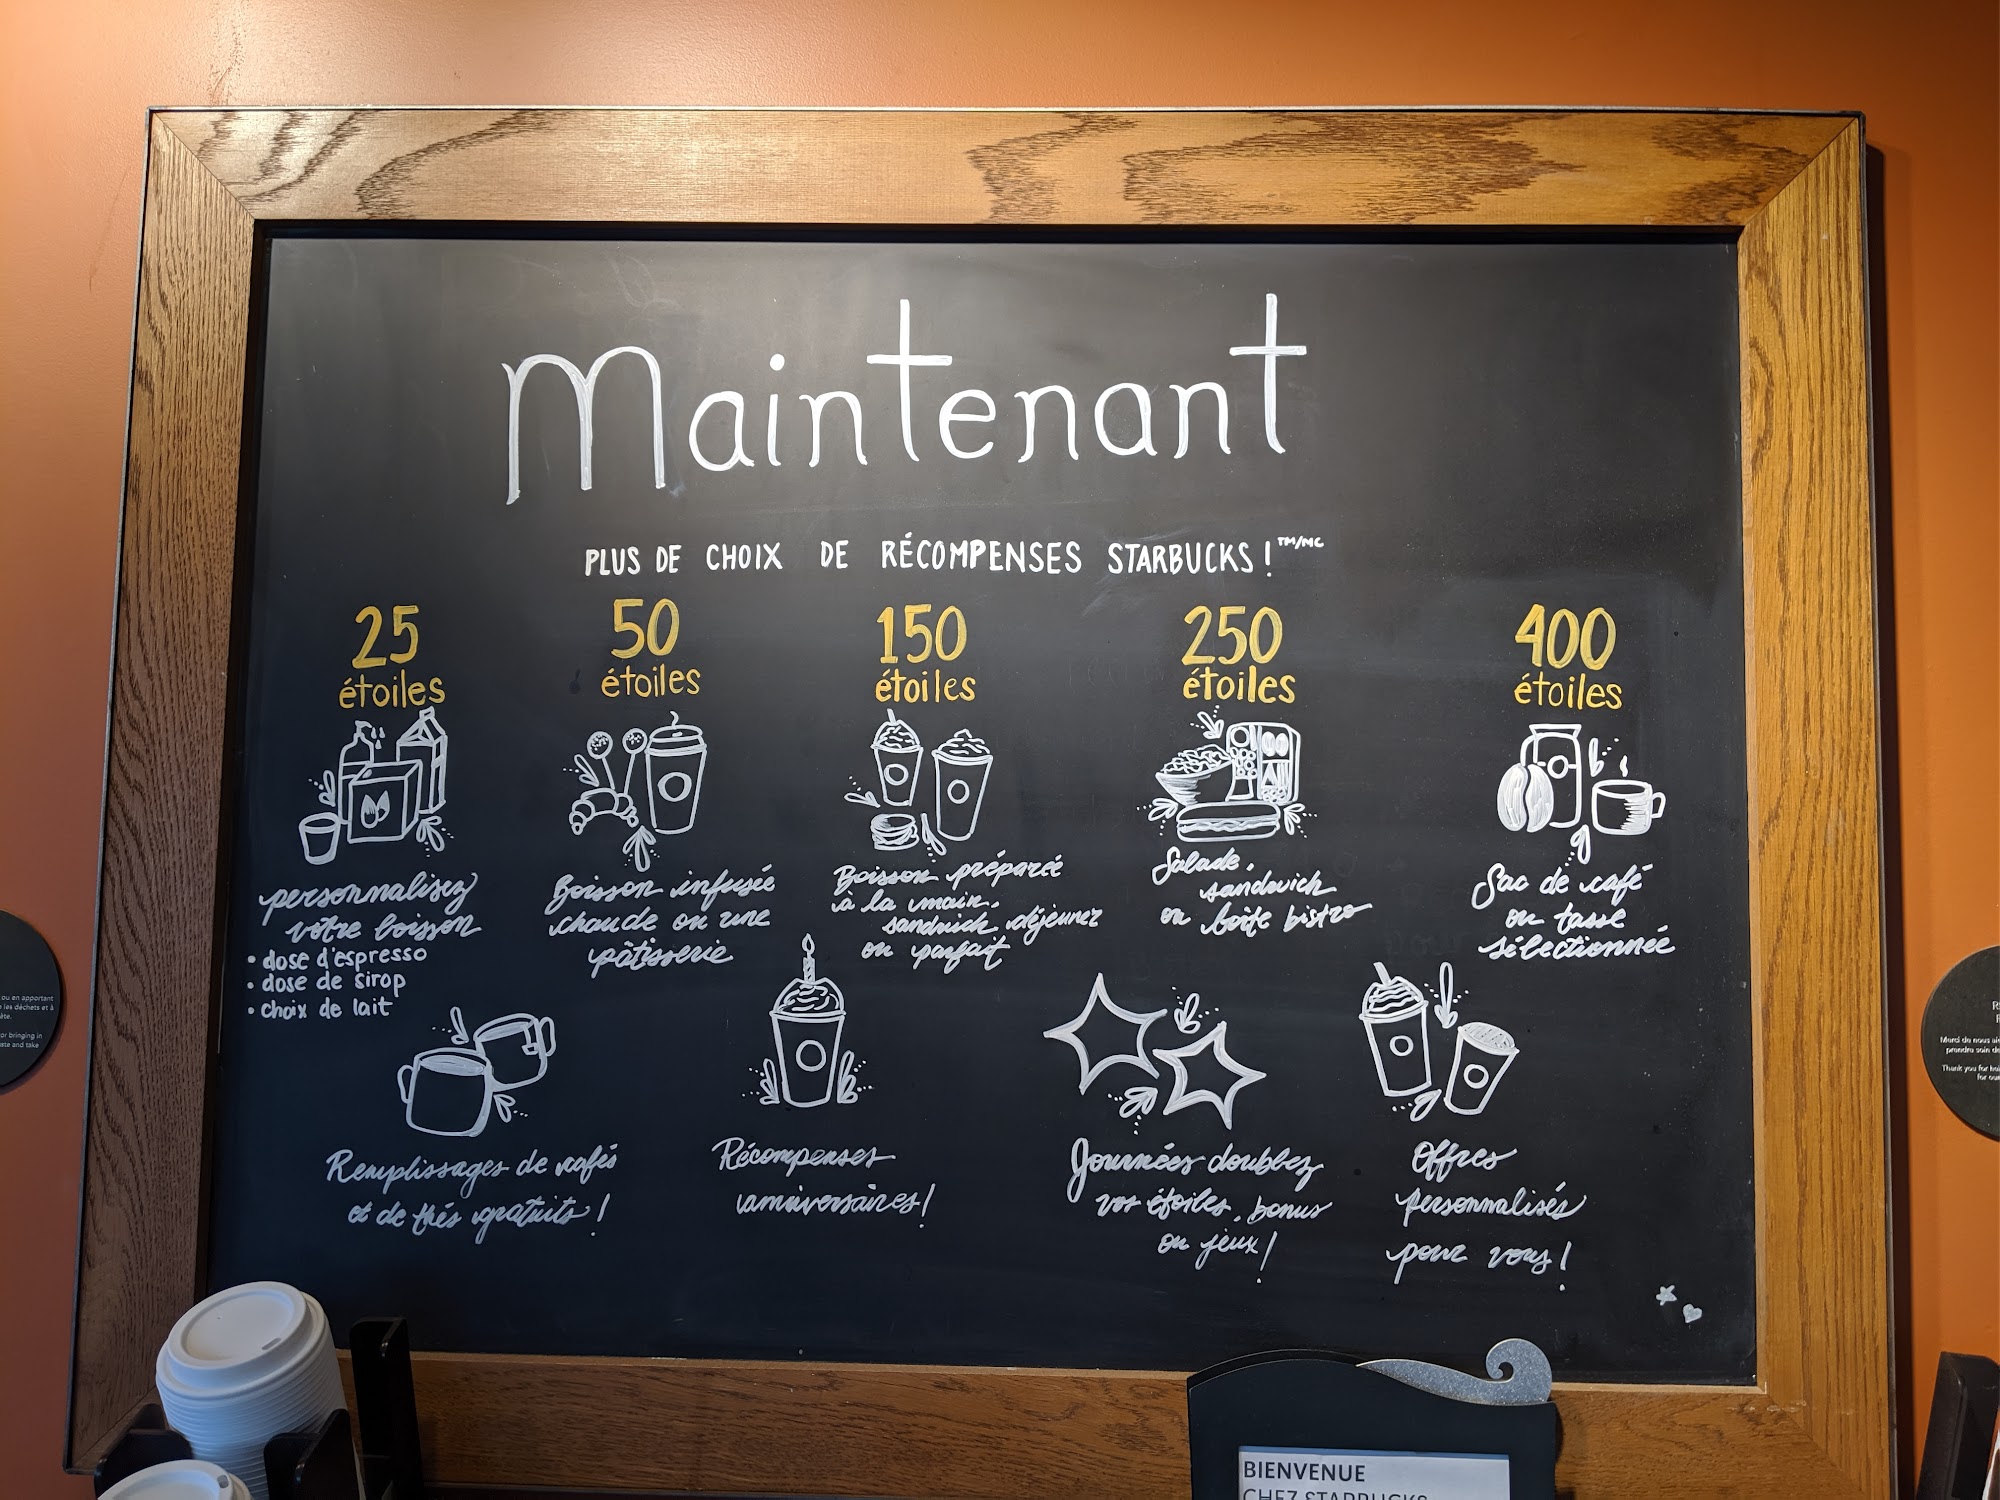 Maintenant
PLUS DE CHOIX DE RÉCOMPENSES STARBUCKS! TM/MC
25
étoiles
personnalisez
votre boisson
• dose d'espresso
• dose de sirop
• choix de lait
50
étoiles
Boisson infusée
chaude ou une
pâtisserie
150
étoiles
Boisson préparée
à la main,
sandwich déjeuner
ou parfait
250
étoiles
Salade,
sandwich
ou boîte bistro
400
étoiles
Sac de café
ou tasse
sélectionnée
Remplissages de cafés
et de thés gratuits!
Récompenses
anniversaires!
Journées doublez
vos étoiles, bonus
ou jeux!
Offres
personnalisés
pour vous!
ou en apportant
les déchets et à
or bringing in
ate and take
Merci de nous
prendre soin de
Thank you for
for our
BIENVENUE
CHEZ STARBUCKS